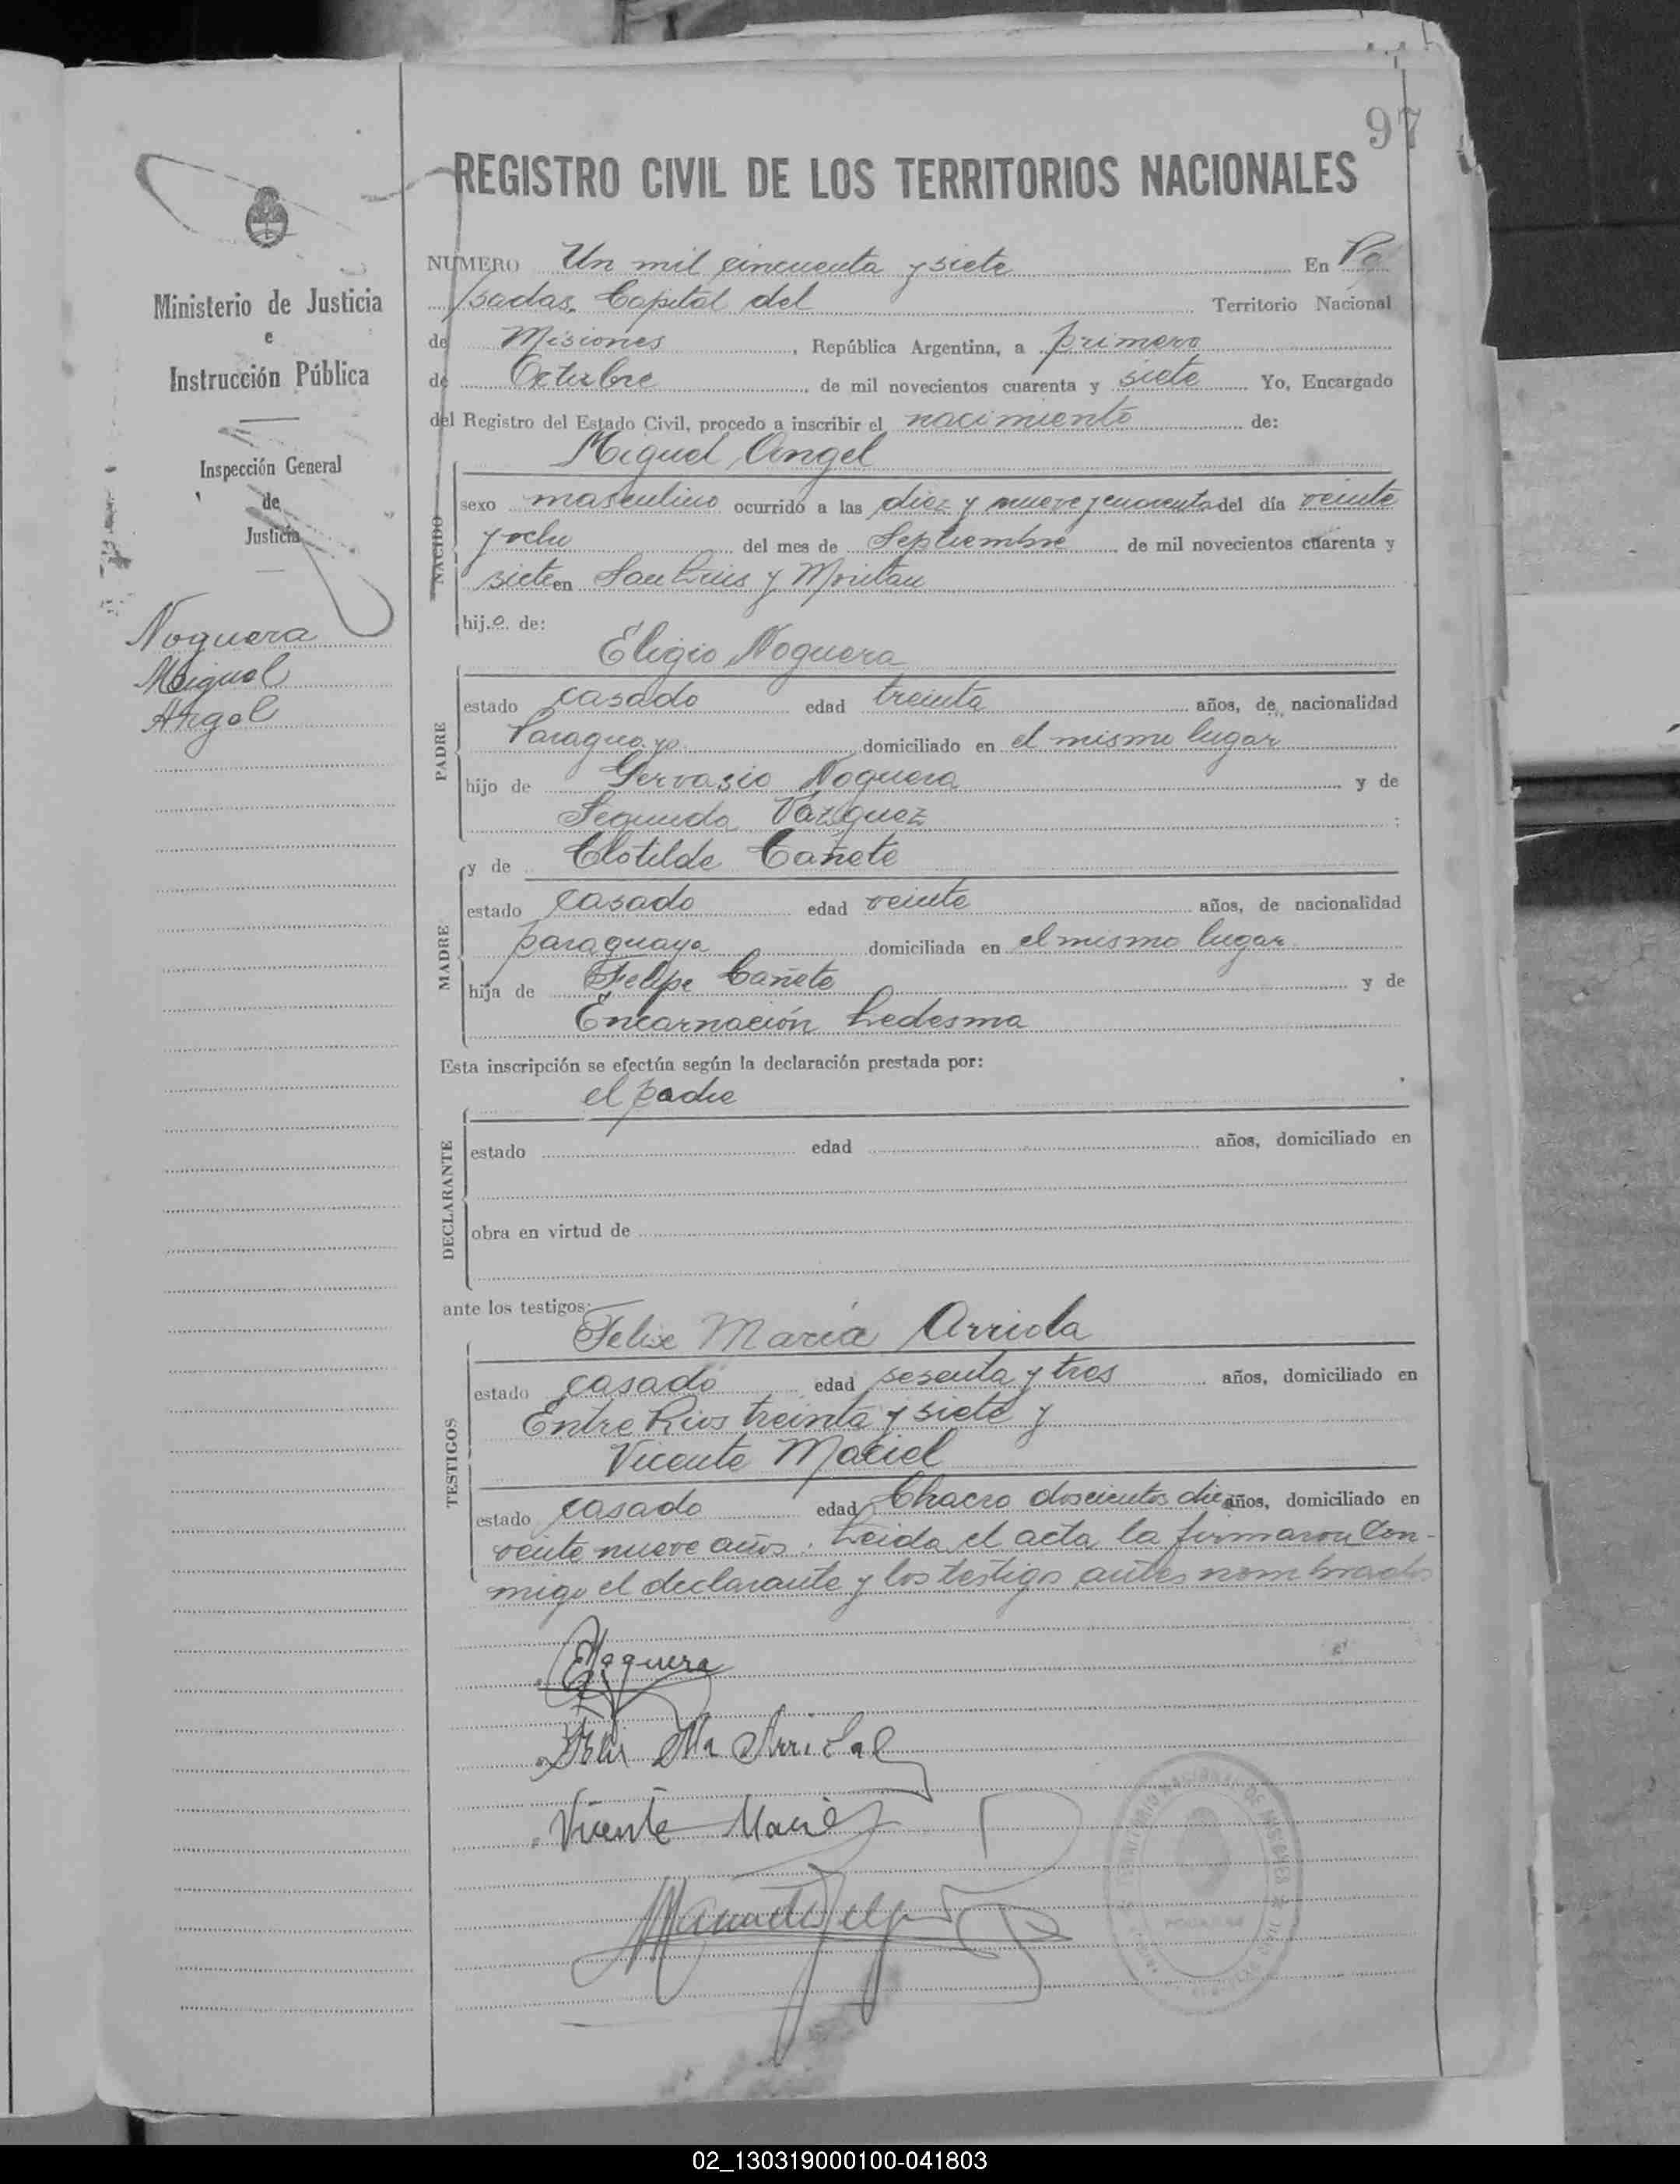 97
REGISTRO CIVIL DE LOS TERRITORIOS NACIONALES
Ministerio de Justicia
e
Instrucción Pública
Inspección General
de
Justicia
Noguera
Miguel
Angel
NUMERO Un mil cincuenta y siete En Po
sadas. Capital del Territorio Nacional
de Misiones, República Argentina, a primero
de Octubre de mil novecientos cuarenta y siete Yo, Encargado
del Registro del Estado Civil, procedo a inscribir el nacimiento de:
Miguel Angel
NACIDO
sexo masculino ocurrido a las diez y nueve y cuarenta del día veinte
y ocho del mes de Septiembre de mil novecientos cuarenta y
siete en San Luis y
hijo de:
Eligio Noguera
PADRE
estado casado edad treinta años, de nacionalidad
Paraguayo domiciliado en el mismo lugar
hijo de Gervasio Noguera y de
Segunda Vazquez ;
y de Clotilde Cañete
MADRE
estado casada edad veinte años, de nacionalidad
paraguaya domiciliada en el mismo lugar
hija de Felipe Cañete y de
Encarnación Ledesma
Esta inscripción se efectúa según la declaración prestada por:
el padre
DECLARANTE
estado edad años, domiciliado en
obra en virtud de
ante los testigos:
Felix María Arriola
TESTIGOS
estado casado edad sesenta y tres años, domiciliado en
Entre Rios treinta y siete y
Vicente Maciel
estado casado edad Chacra doscientos diez años, domiciliado en
veinte nueve años. Leida el acta la firmaron Con-
migo el declarante y los testigos antes nombrados
ENoguera
Felix Ma Arriola
Vicente Maciel
02_130319000100-041803